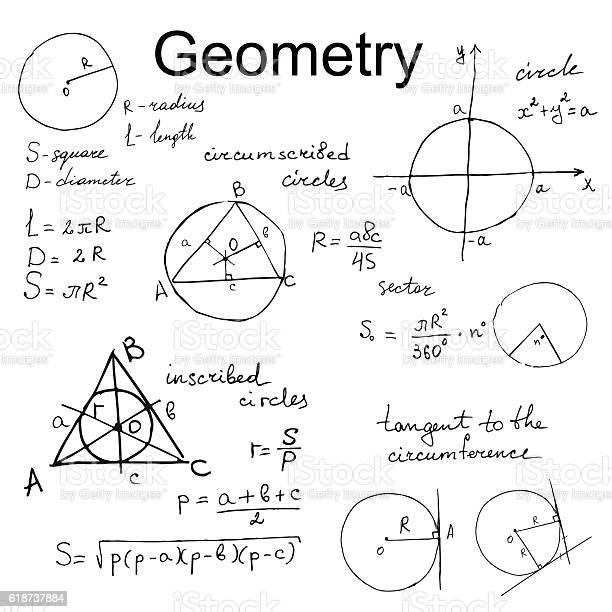 Geometry
R
O
R - radius
L - length
S - square
D - diameter
L = 2πR
D = 2R
S = πR²
circumscribed
circles
B
a
b
O
c
A
C
R = abc/4S
y
circle
x² + y² = a
a
-a
a
x
-a
sector
S₀ = πR²/360° · n°
n°
B
r
a
b
O
A
C
c
inscribed
circles
r = S/p
p = a+b+c/2
S = √p(p-a)(p-b)(p-c)
tangent to the
circumference
R
O
A
R
O
R
iStock
by Getty Images™
618737884